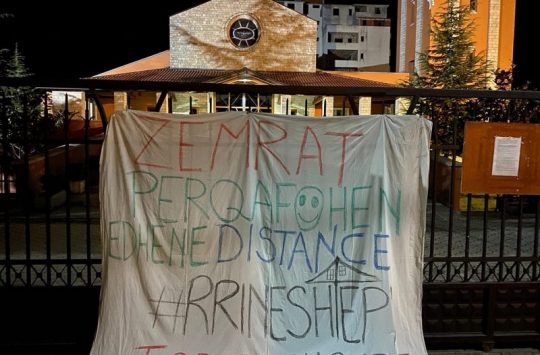 ZEMRAT
PERQAFOHEN
EDHENE DISTANCE
#RRINESHTEP